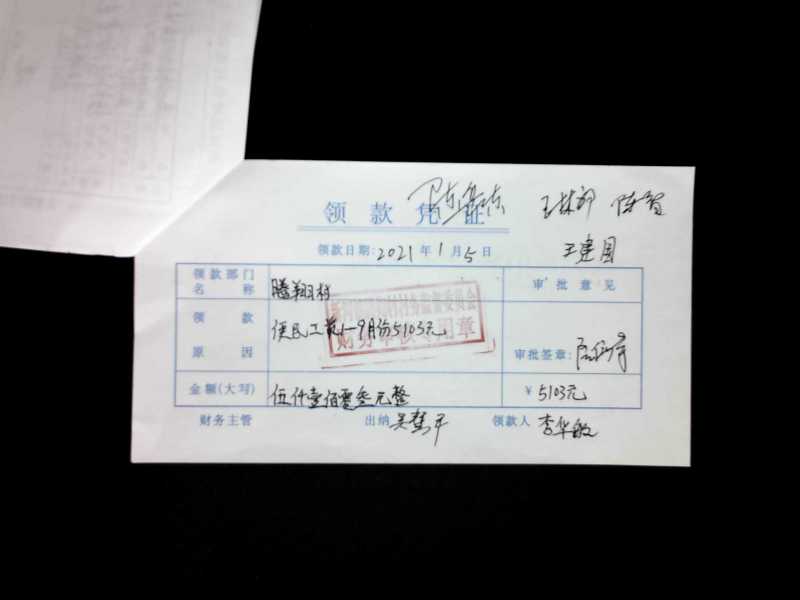 领款凭证
王林郁 陈智
王建国
领款日期:2021年1月5日
领款部门名称 腾翔村
审批意见
领款原因 便民工资1-9月份5103元
村务监督委员会
财务审核专用章
审批签章:
金额(大写) 伍仟壹佰零叁元整 ¥ 5103元
财务主管 出纳 领款人 李华敏